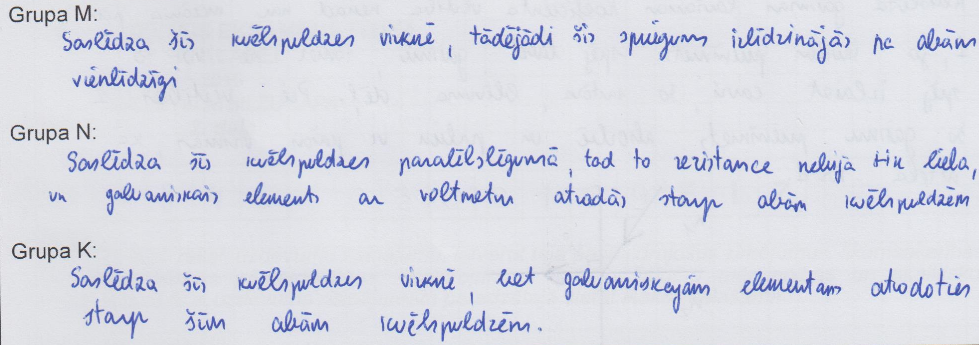 Grupa M:
Saslēdza šīs kvēlspuldzes virknē, tādējādi šis spriegums izlīdzinājās pa abām
vienlīdzīgi
Grupa N:
Saslēdza šīs kvēlspuldzes paralēlslēgumā, tad to rezistance nebija tik liela,
un galvaniskais elements ar voltmetru atradās starp abām kvēlspuldzēm
Grupa K:
Saslēdza šīs kvēlspuldzes virknē, bet galvaniskajam elementam atrodoties
starp šīm abām kvēlspuldzēm.